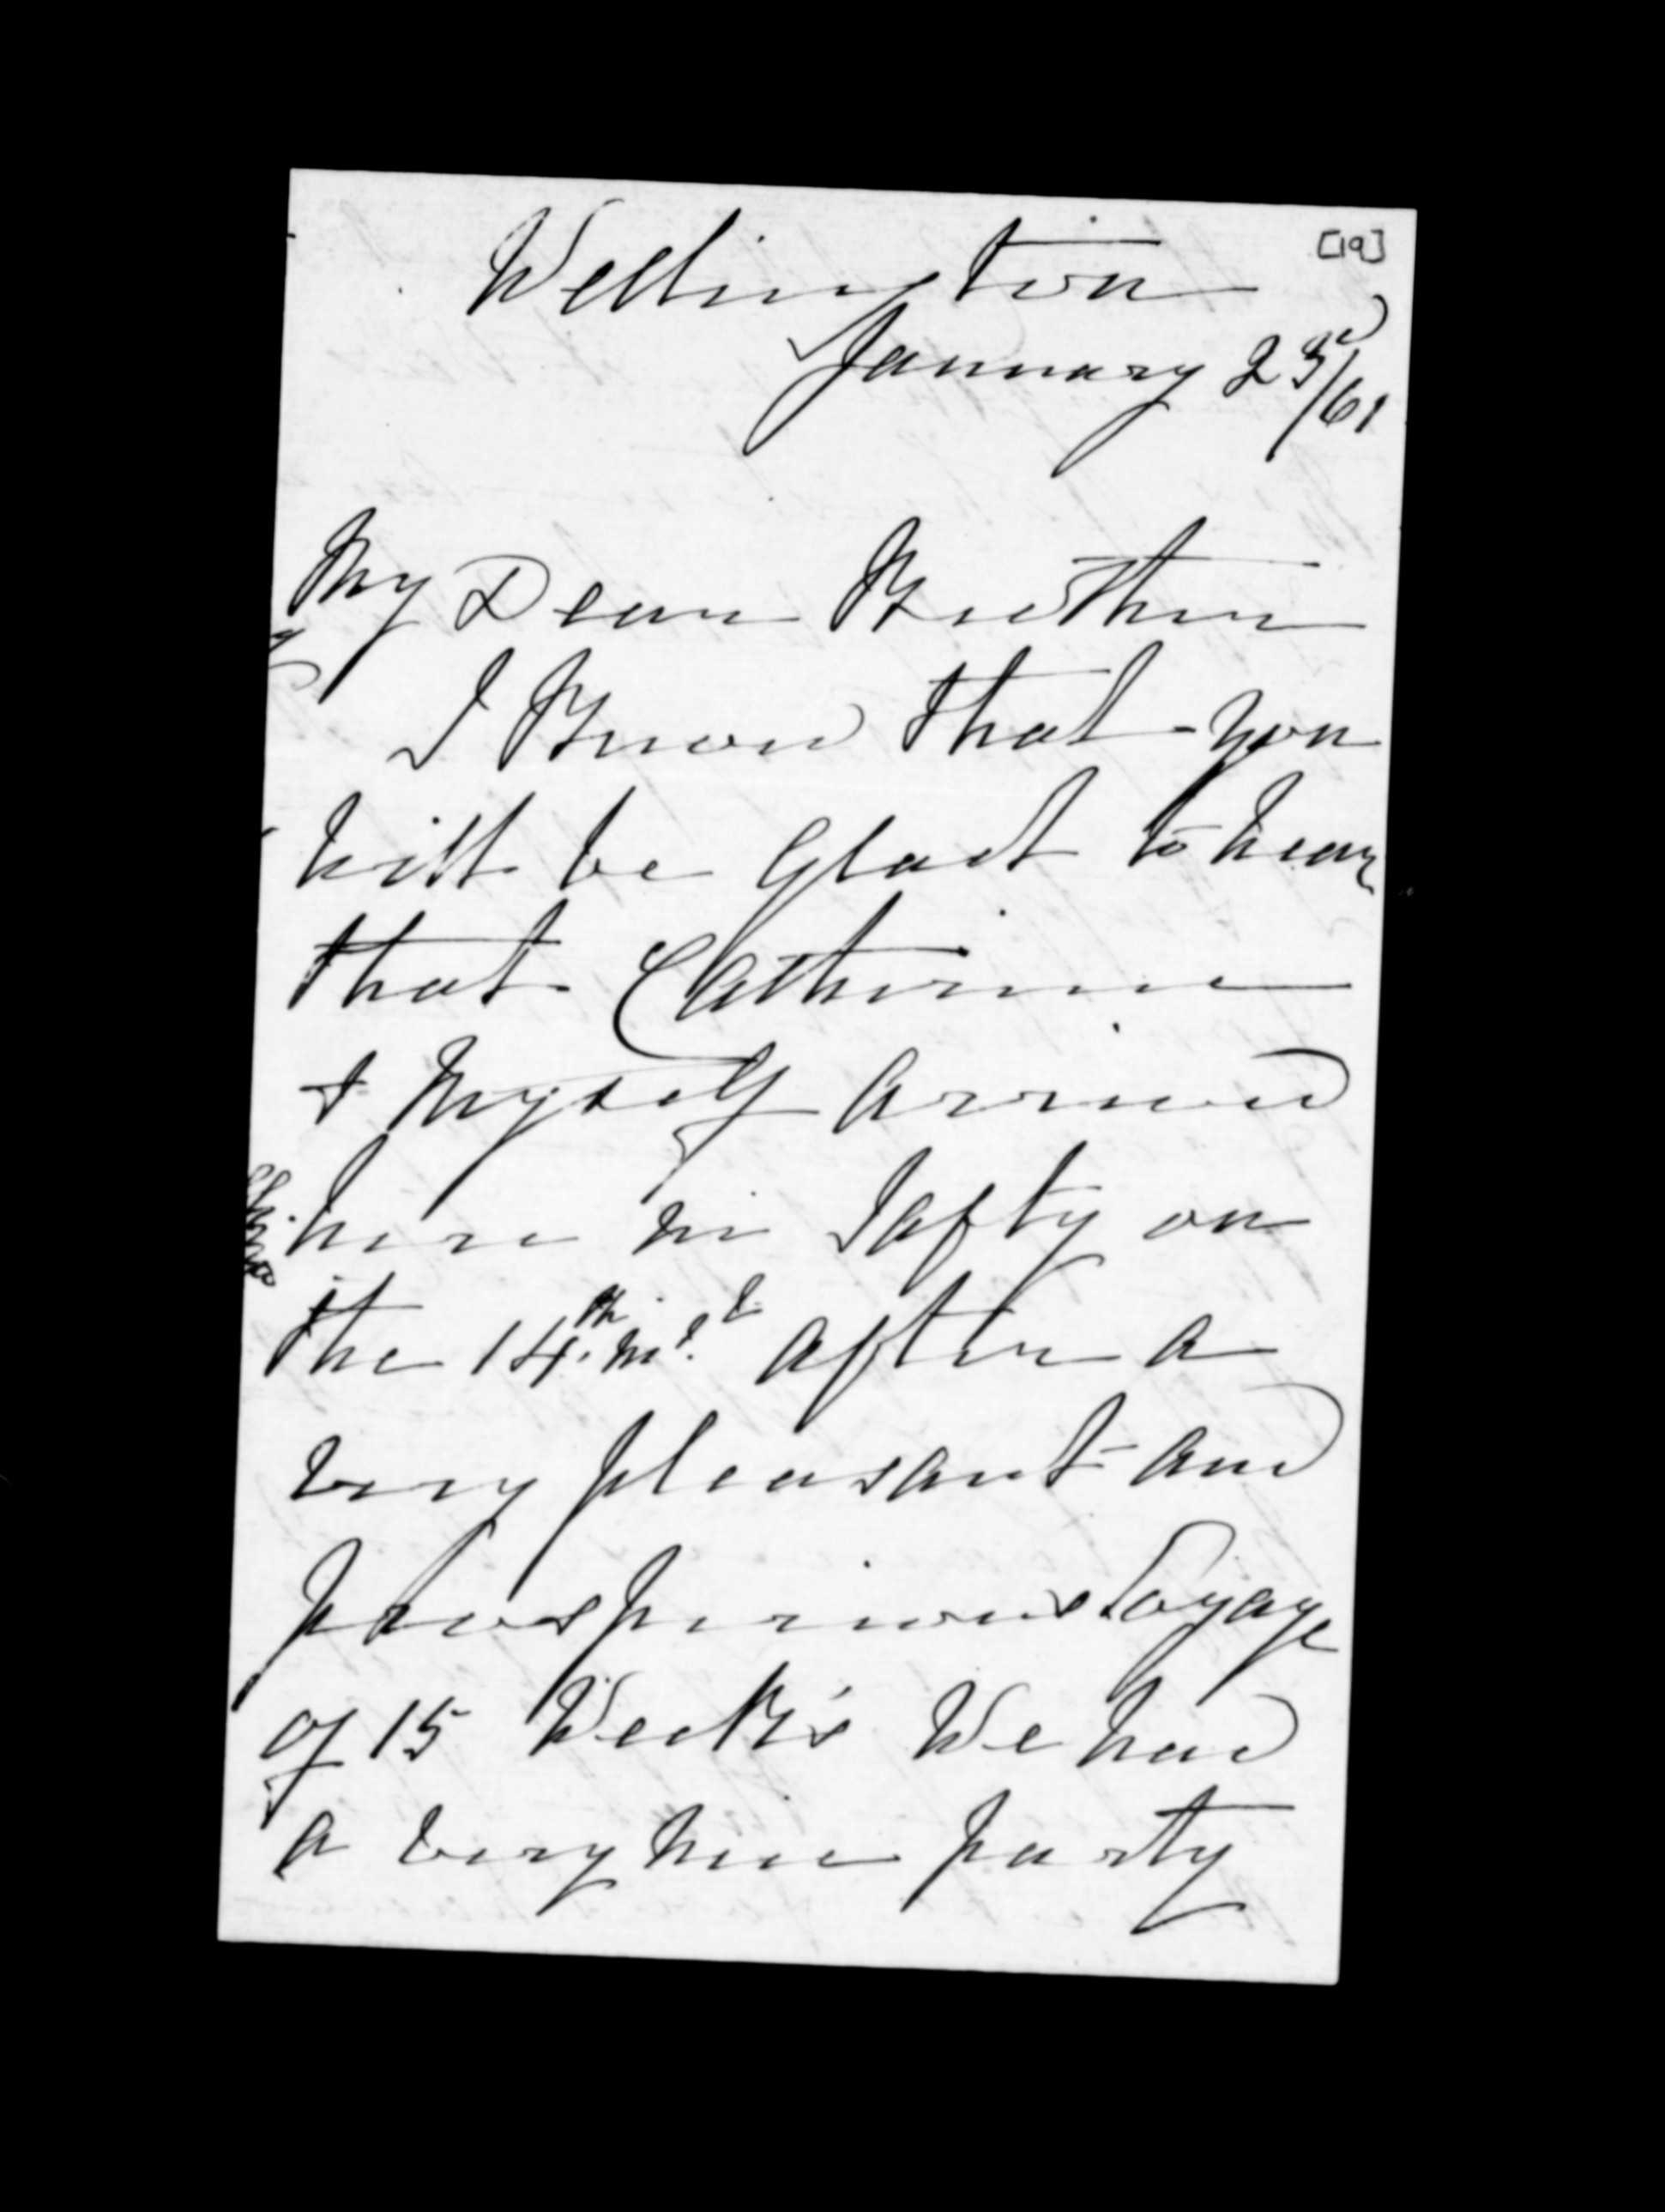 [19]
Wellington
January 23d/61
My Dear Brother
I Know that you
will be Glad to hear
that Catherine
& Myself arrived
here in Safty on
the 14th. inst. after a
very pleasant and
prosperious Voyage
of 15 Week's We had
a very nice party